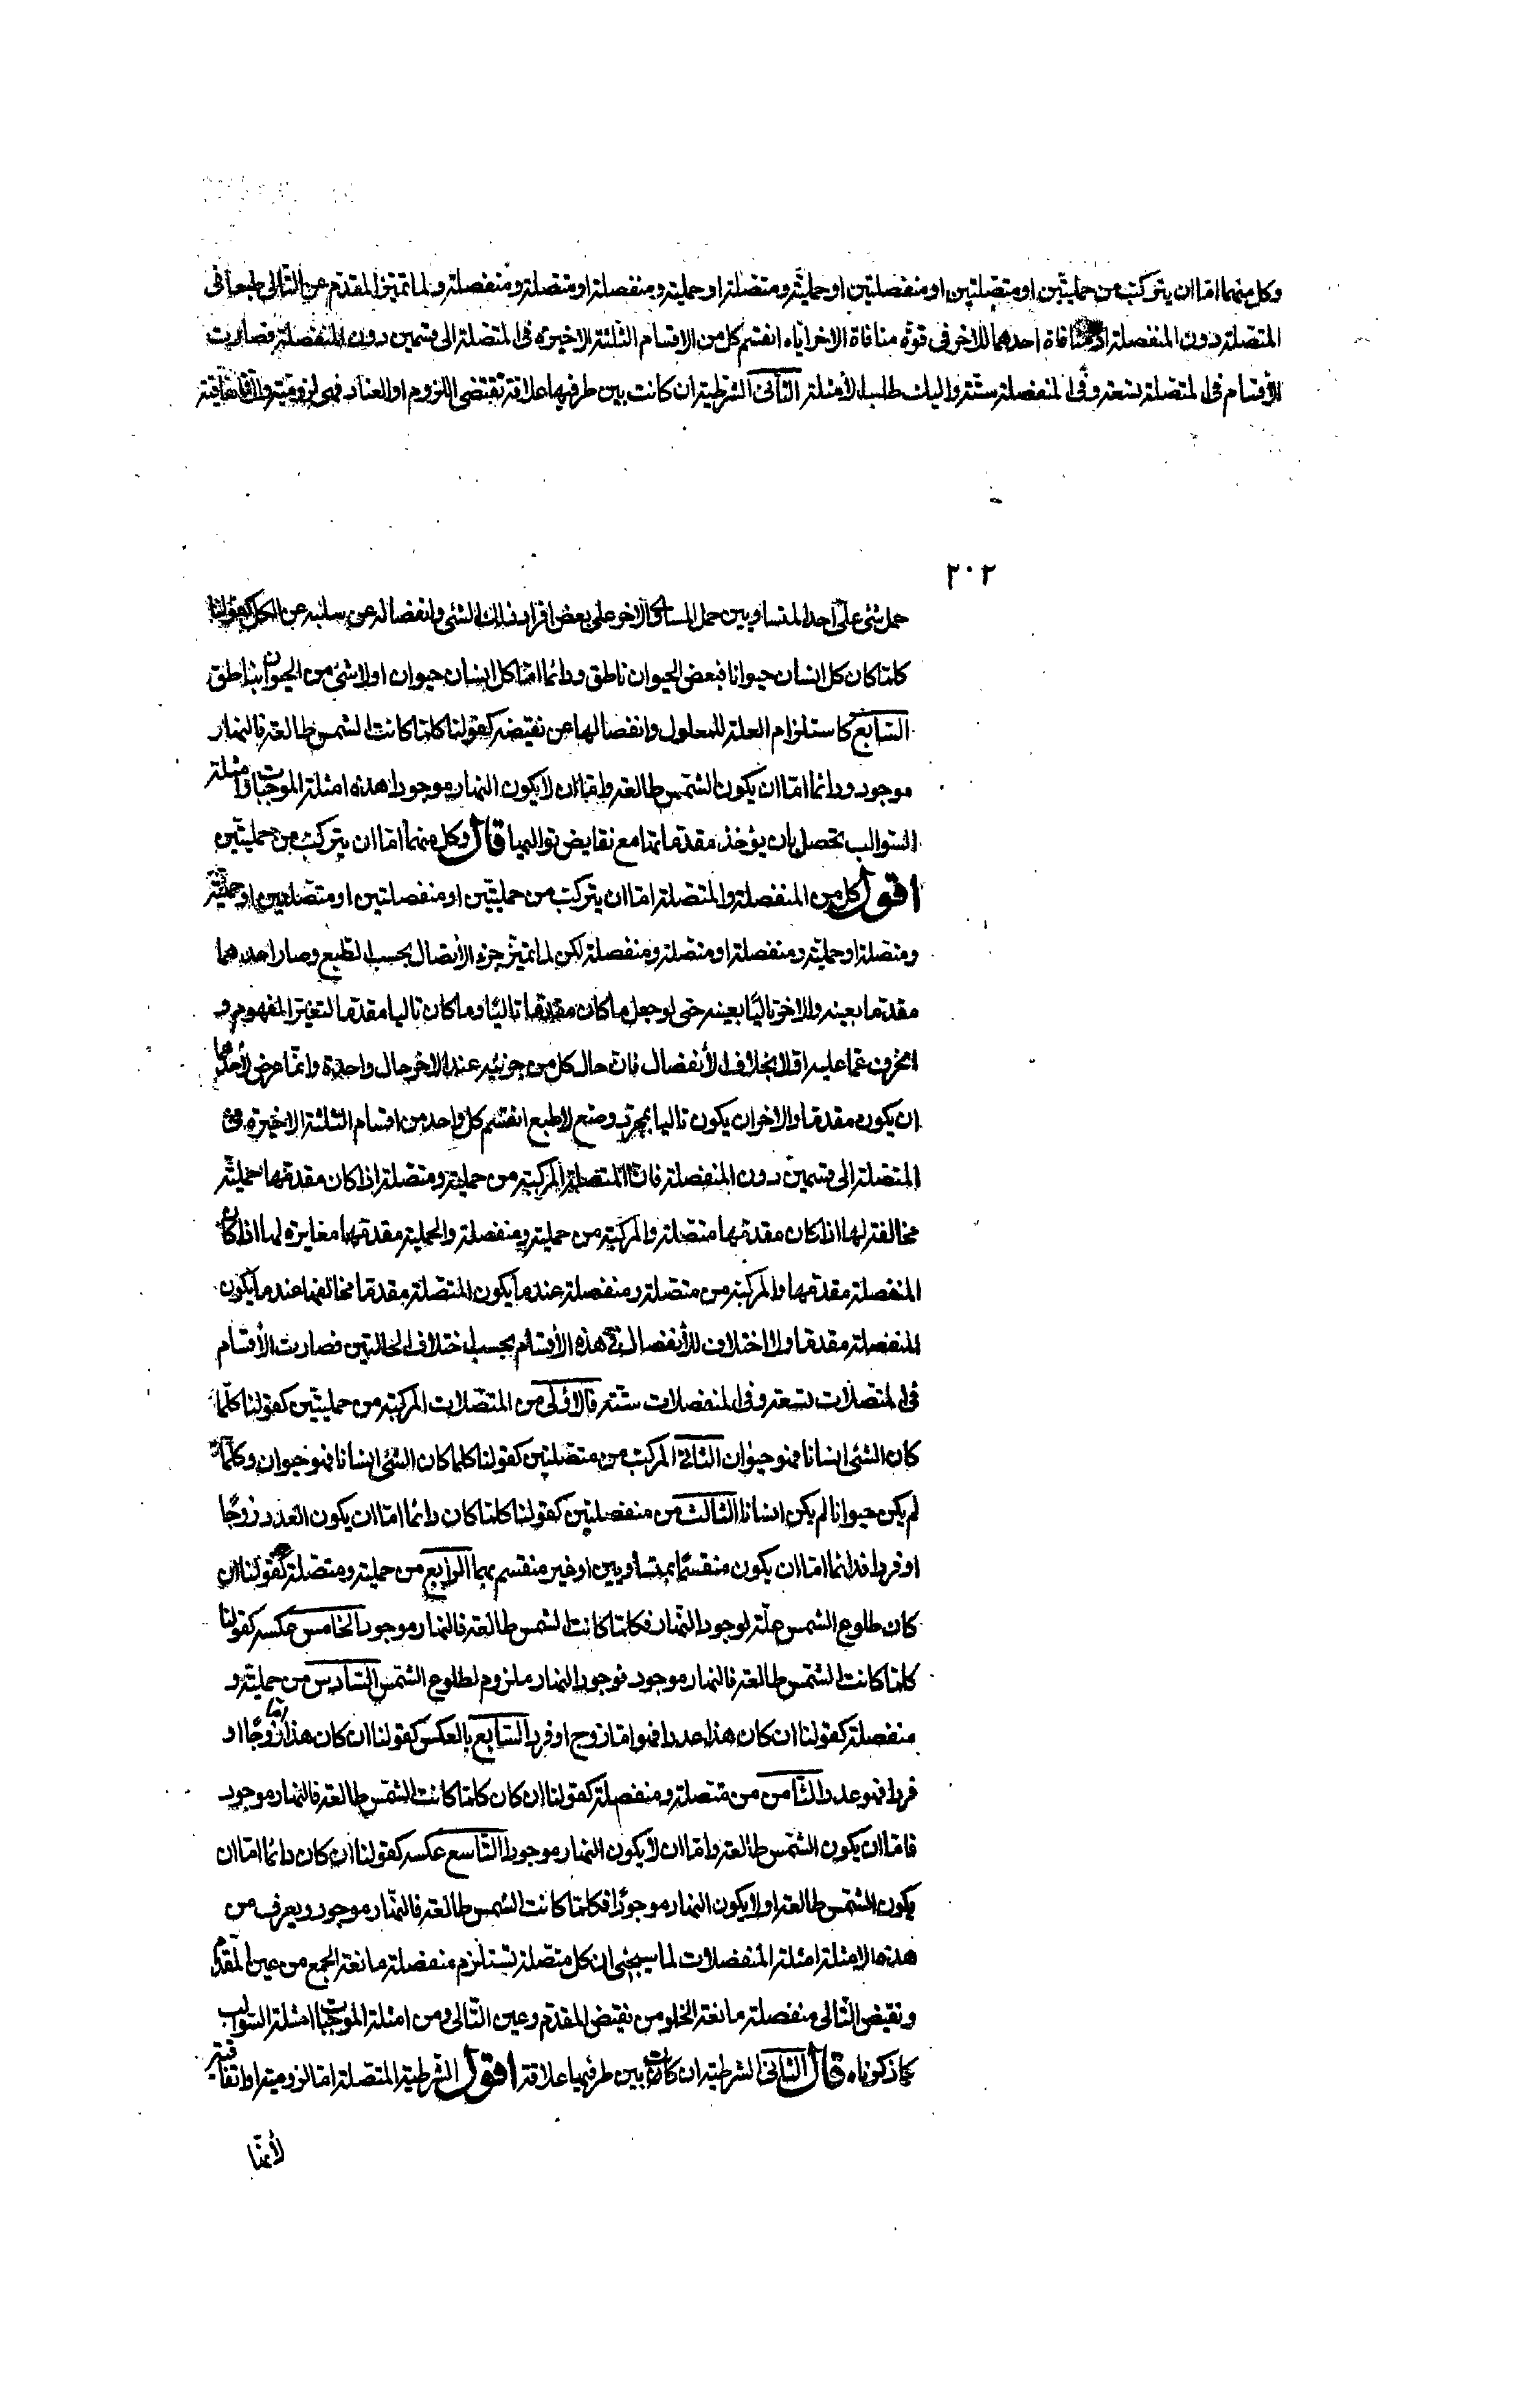 وكل منهما اما ان يتركب من حمليتين او متصلتين او منفصلتين او حملية ومتصلة او حملية ومنفصلة او متصلة ومنفصلة ولما تميز المقدم عن التالى طبعا فى
المتصلة دون المنفصلة اذ منافاة احدهما للاخر فى قوة منافاة الاخر اياه انقسم كل من الاقسام الثلثة الاخيرة فى المتصلة الى قسمين دون المنفصلة فصارت
الأقسام فى المتصلة تسعة وفى المنفصلة ستة واليك طلب الأمثلة الثانى الشرطية ان كانت بين طرفيها علاقة تقتضى اللزوم او العناد فهى لزومية
٢٠٢
حمل شئ على احد المتساويين حمل المساوى الاخر على بعض افراد ذلك الشئ وانفصاله عن سلبه عن الكل كقولنا
كلما كان كل انسان حيوانا فبعض الحيوان ناطق ودائما اما كل انسان حيوان او لا شئ من الحيوان بناطق
السابع كاستلزام العلة للمعلول وانفصالها عن نقيضه كقولنا كلما كانت الشمس طالعة فالنهار
موجود ودائما اما ان يكون الشمس طالعة واما ان لا يكون النهار موجودا هذه امثلة الموجبات وامثلة
السوالب تحصل بان يؤخذ مقدماتها مع نقايض تواليها قال وكل منهما اما ان يتركب من حمليتين
اقول كل من المنفصلة والمتصلة اما ان يتركب من حمليتين او منفصلتين او متصلتين او حملية
ومتصلة او حملية ومنفصلة او متصلة ومنفصلة لكن لما تميز جزء الأتصال بحسب الطبع وصار احدهما
مقدما بعينه والاخر تاليا بعينه حتى لو جعل ما كان مقدما تاليا وما كان تاليا مقدما لتغير المفهوم و
انحرف عما عليه اولا بخلاف الأنفصال فان حال كل من جزئيه عند الاخر حال واحدة وانما عرض لأحدهما
ان يكون مقدما والاخر ان يكون تاليا بمجرد وضع لا طبع انقسم كل واحد من اقسام الثلثة الاخيرة فى
المتصلة الى قسمين دون المنفصلة فان المتصلة المركبة من حملية ومتصلة اذا كان مقدمها حملية
مخالفة لها اذا كان مقدمها متصلة والمركبة من حملية ومنفصلة والحملية مقدمها مغايرة لها اذا كان
المنفصلة مقدمها والمركبة من متصلة ومنفصلة عندما يكون المتصلة مقدما مخالفها عندما يكون
المنفصلة مقدما ولا اختلاف للأنفصال فى هذه الأقسام بحسب اختلاف الحالتين فصارت الأقسام
فى المتصلات تسعة وفى المنفصلات ستة فالأولى من المتصلات المركبة من حمليتين كقولنا كلما
كان الشئ انسانا فهو حيوان الثانى المركب من متصلتين كقولنا كلما كان الشئ انسانا فهو حيوان وكلما
لم يكن حيوانا لم يكن انسانا الثالث من منفصلتين كقولنا كلما كان دائما اما ان يكون العدد زوجا
او فردا فدائما اما ان يكون منقسما بمتساويين او غير منقسم بهما الرابع من حملية ومتصلة كقولنا ان
كان طلوع الشمس علة لوجود النهار فكلما كانت الشمس طالعة فالنهار موجود الخامس عكسه كقولنا
كلما كانت الشمس طالعة فالنهار موجود فوجود النهار ملزوم لطلوع الشمس السادس من حملية و
منفصلة كقولنا ان كان هذا عددا فهو اما زوج او فرد السابع بالعكس كقولنا ان كان هذا اما زوجا او
فردا فهو عدد الثامن من متصلة ومنفصلة كقولنا ان كان كلما كانت الشمس طالعة فالنهار موجود
فاما ان يكون الشمس طالعة واما ان لا يكون النهار موجودا التاسع عكسه كقولنا ان كان دائما اما ان
يكون الشمس طالعة او لا يكون النهار موجودا فكلما كانت الشمس طالعة فالنهار موجود ويعرف من
هذه الامثلة امثلة المنفصلات لما سيجئ ان كل متصلة تستلزم منفصلة مانعة الجمع من عين المقدم
ونقيض التالى منفصلة مانعة الخلو من نقيض المقدم وعين التالى ومن امثلة الموجبات امثلة السوالب
كما ذكرناه قال الثانى الشرطية ان كانت بين طرفيها علاقة اقول الشرطية المتصلة اما لزومية او اتفاقية
لأنها